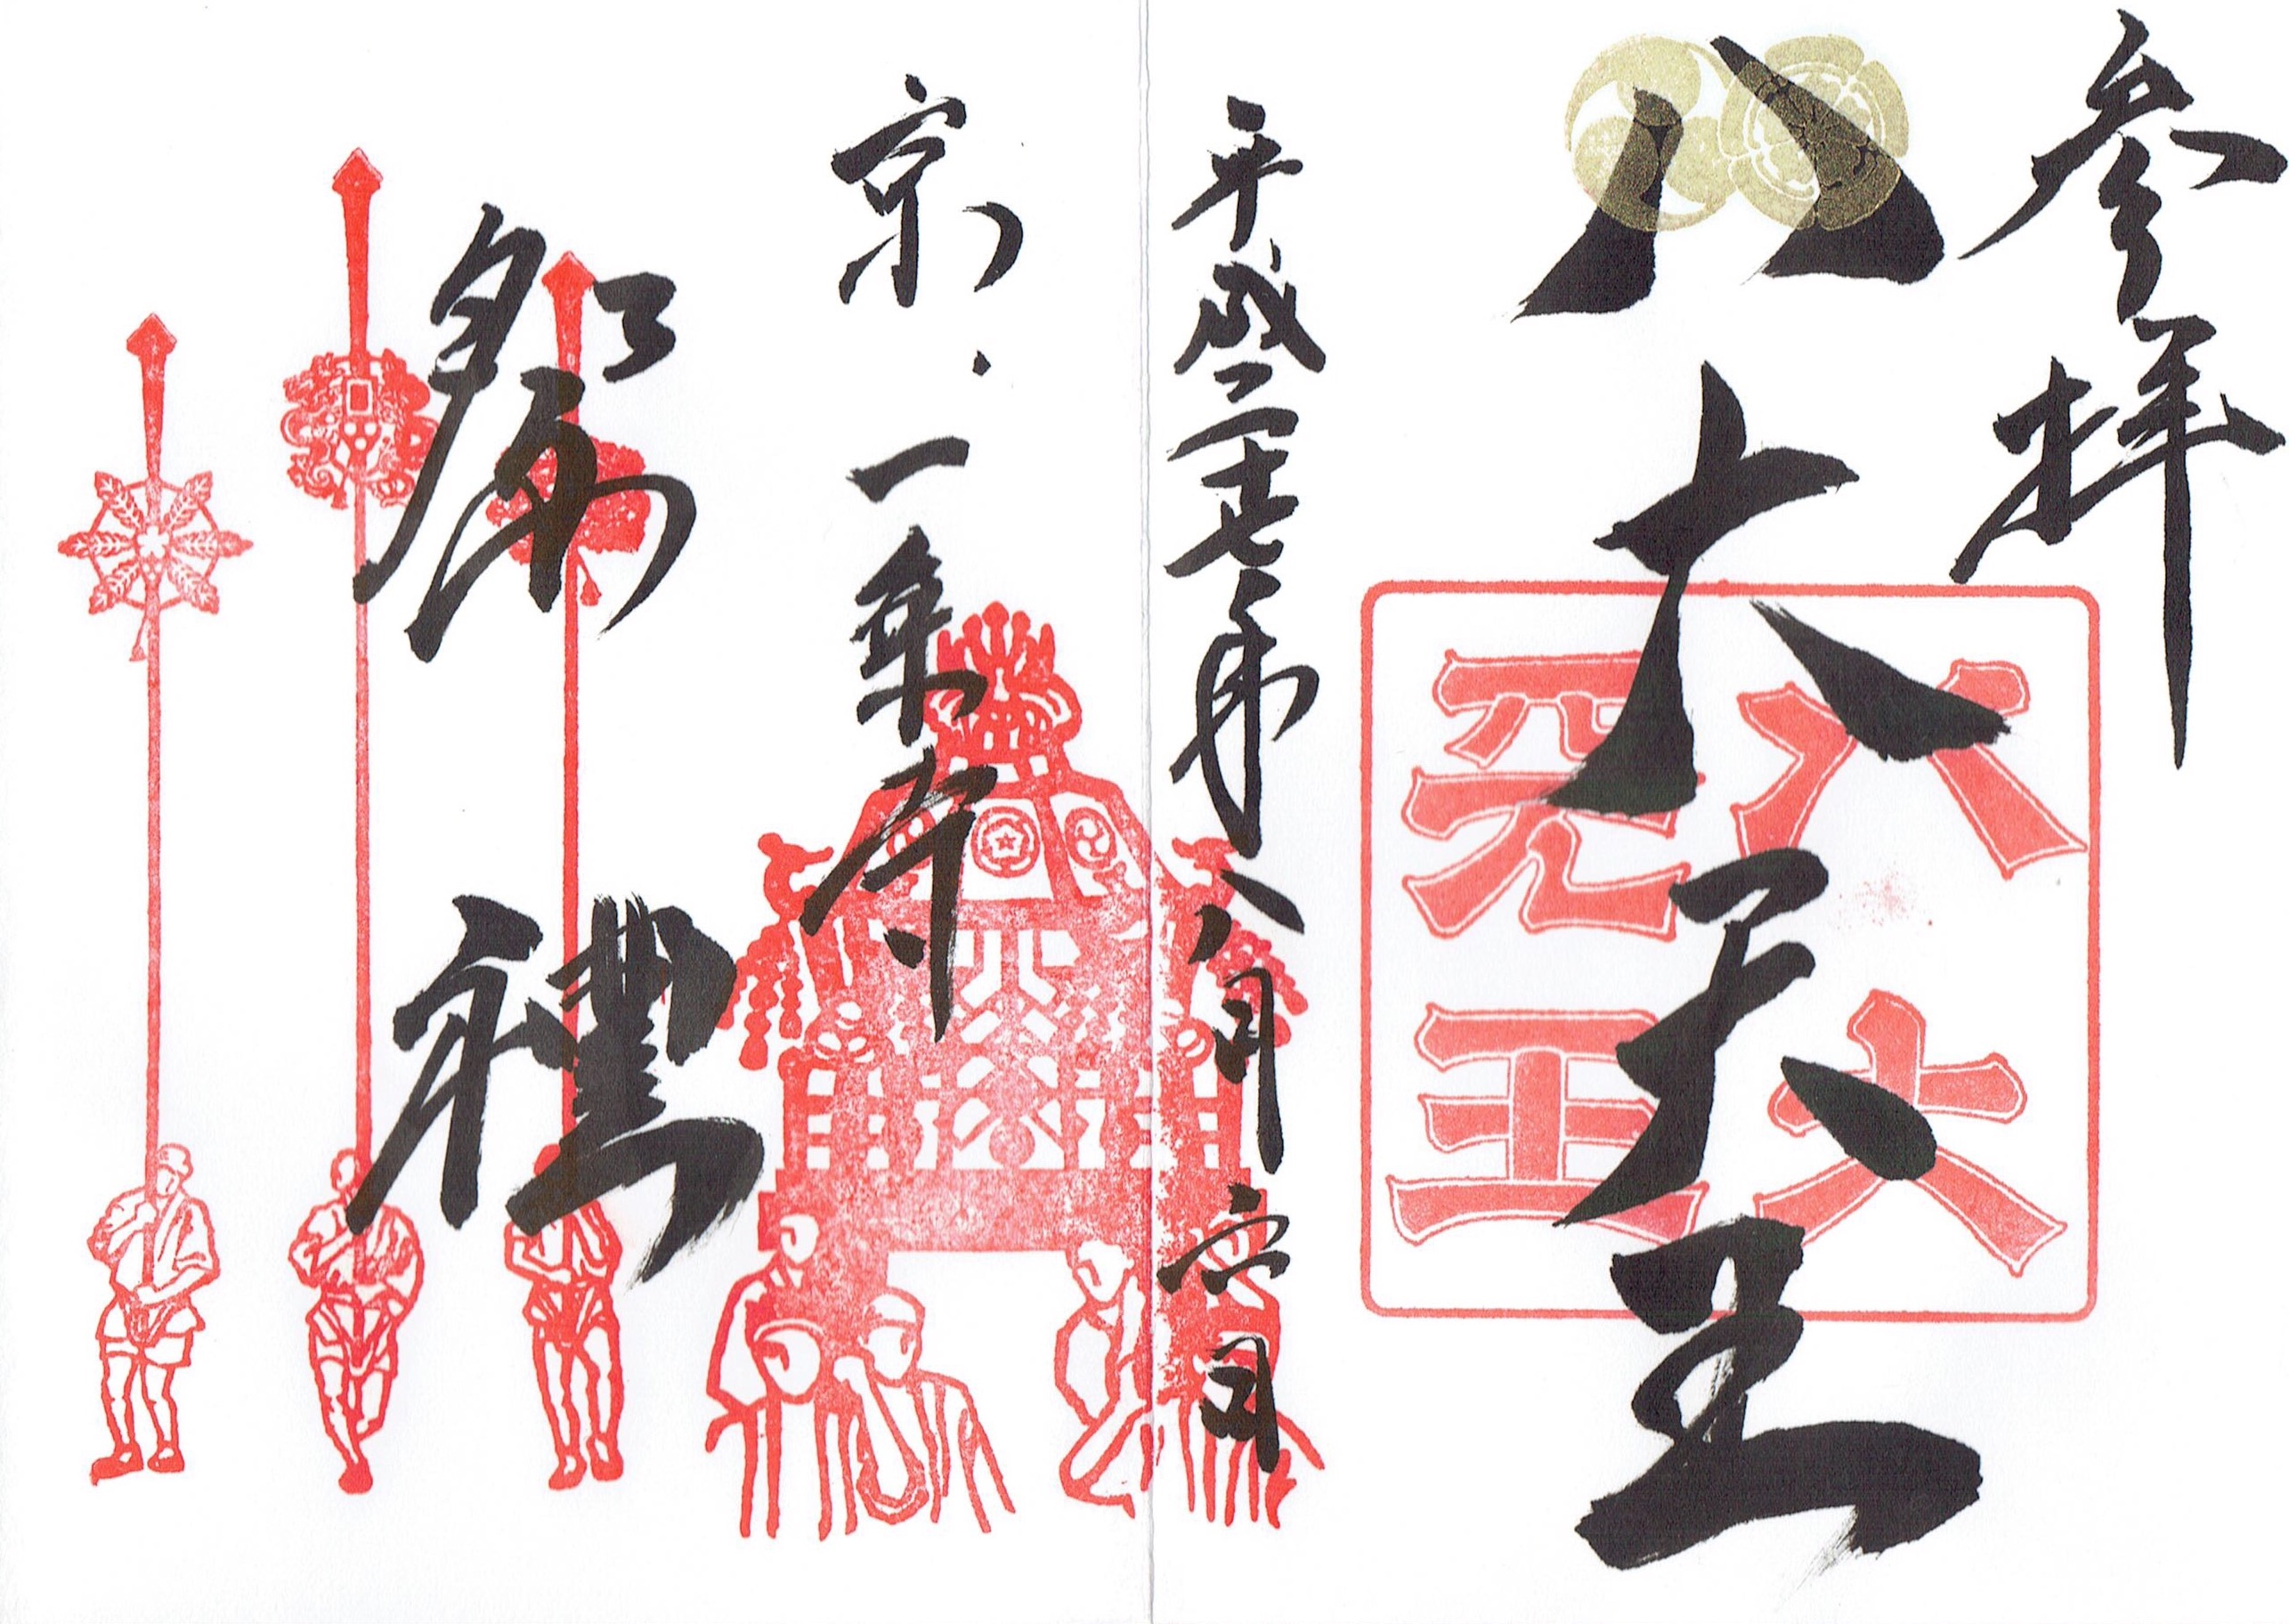 参拝
八大天王
八大天王
平成二十七年八月六日
京・一乗寺
祭禮